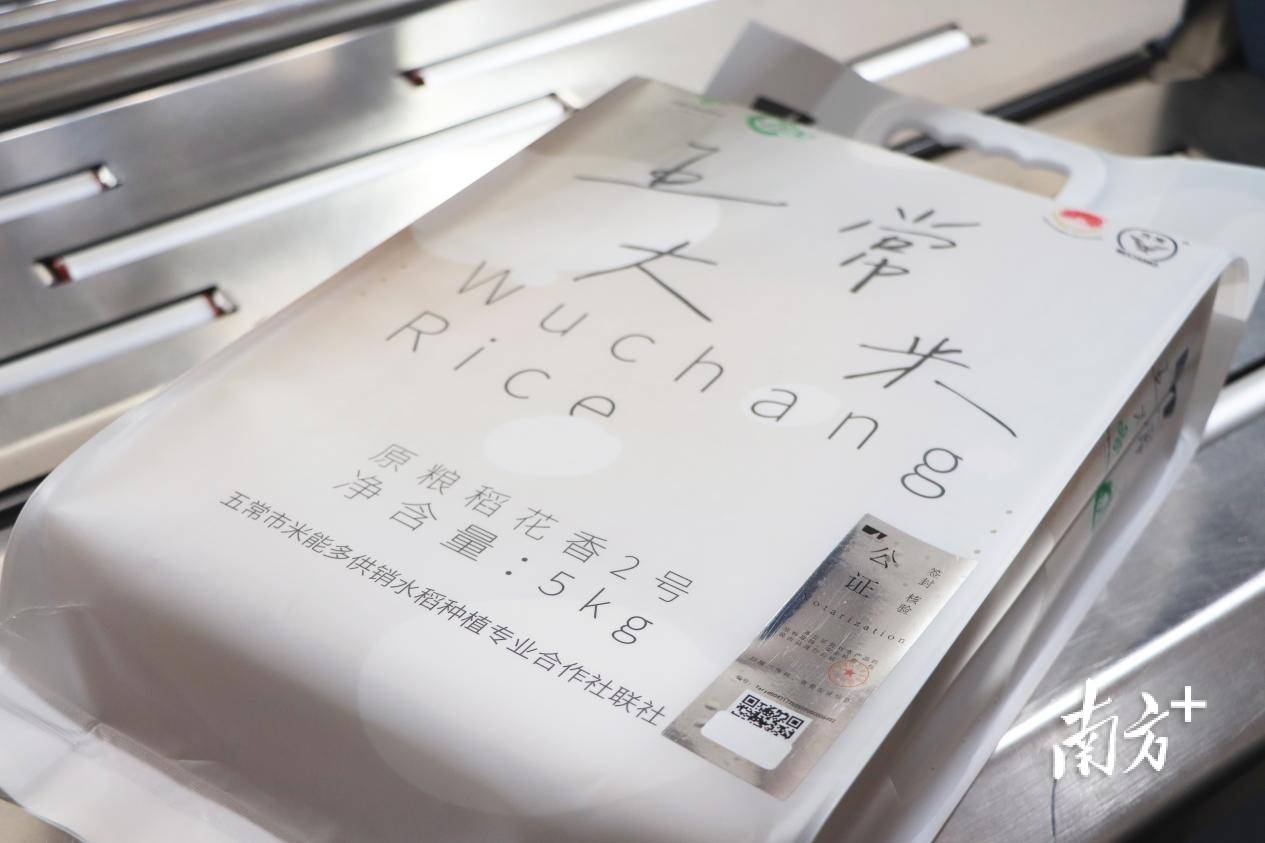 五常
大米
Wuchang
Rice
原粮稻花香2号
净含量:5kg
五常市米能多供销水稻种植专业合作社联社
公证
签封 核验
Notarization
编号:
南方+